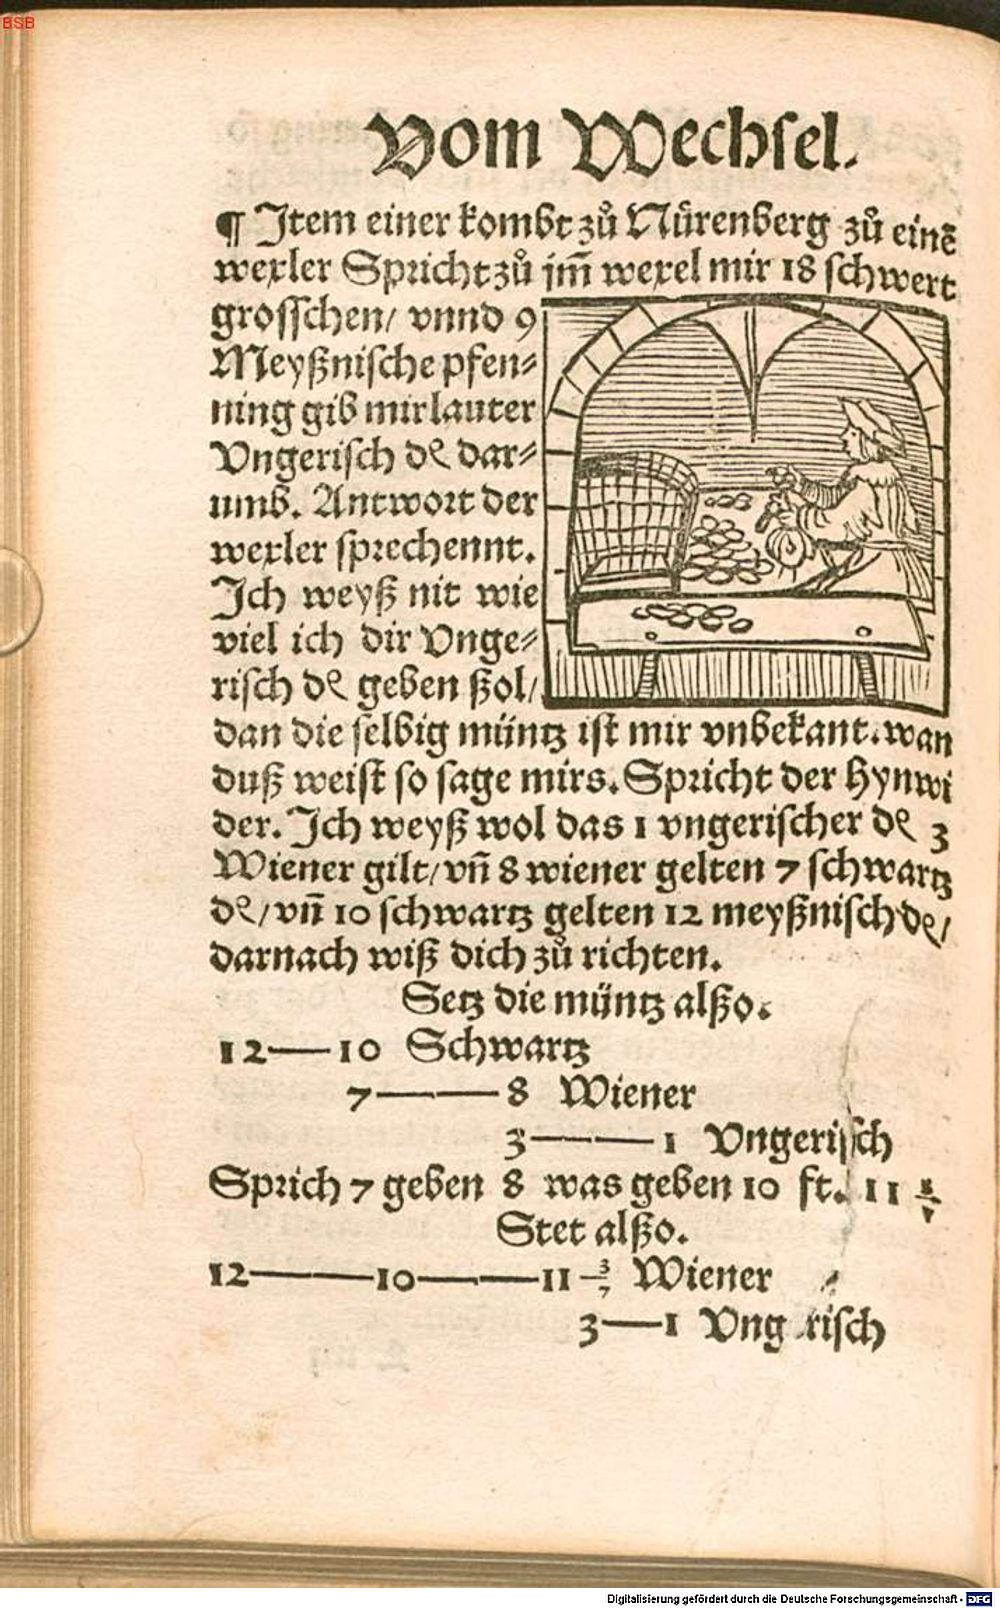 BSB
Vom Wechſel.
¶ Item einer kombt zů Nürenberg zů einē
wexler Spricht zů jm̄ wexel mir 18 ſchwert
groſſchen/ vnnd 9
Meyßniſche pfen⸗
ning gib mir lauter
Vngeriſch d₰ dar⸗
umb. Antwort der
wexler ſprechennt.
Ich weyß nit wie
viel ich dir Vnge⸗
riſch d₰ geben ßol/
dan die ſelbig müntz iſt mir vnbekant. wan
duß weiſt ſo ſage mirs. Spricht der hynwi
der. Ich weyß wol das 1 vngeriſcher d₰ 3
Wiener gilt/ vn̄ 8 wiener gelten 7 ſchwartz
d₰/ vn̄ 10 ſchwartz gelten 12 meyßniſch d₰/
darnach wiß dich zů richten.
Setz die müntz alßo.
12—10 Schwartz
7——8 Wiener
3——1 Vngeriſch
Sprich 7 geben 8 was geben 10 ft. 11
Stet alßo.
12——10——11 3/7 Wiener
3—1 Vng riſch
Digitalisierung gefördert durch die Deutsche Forschungsgemeinschaft - DFG